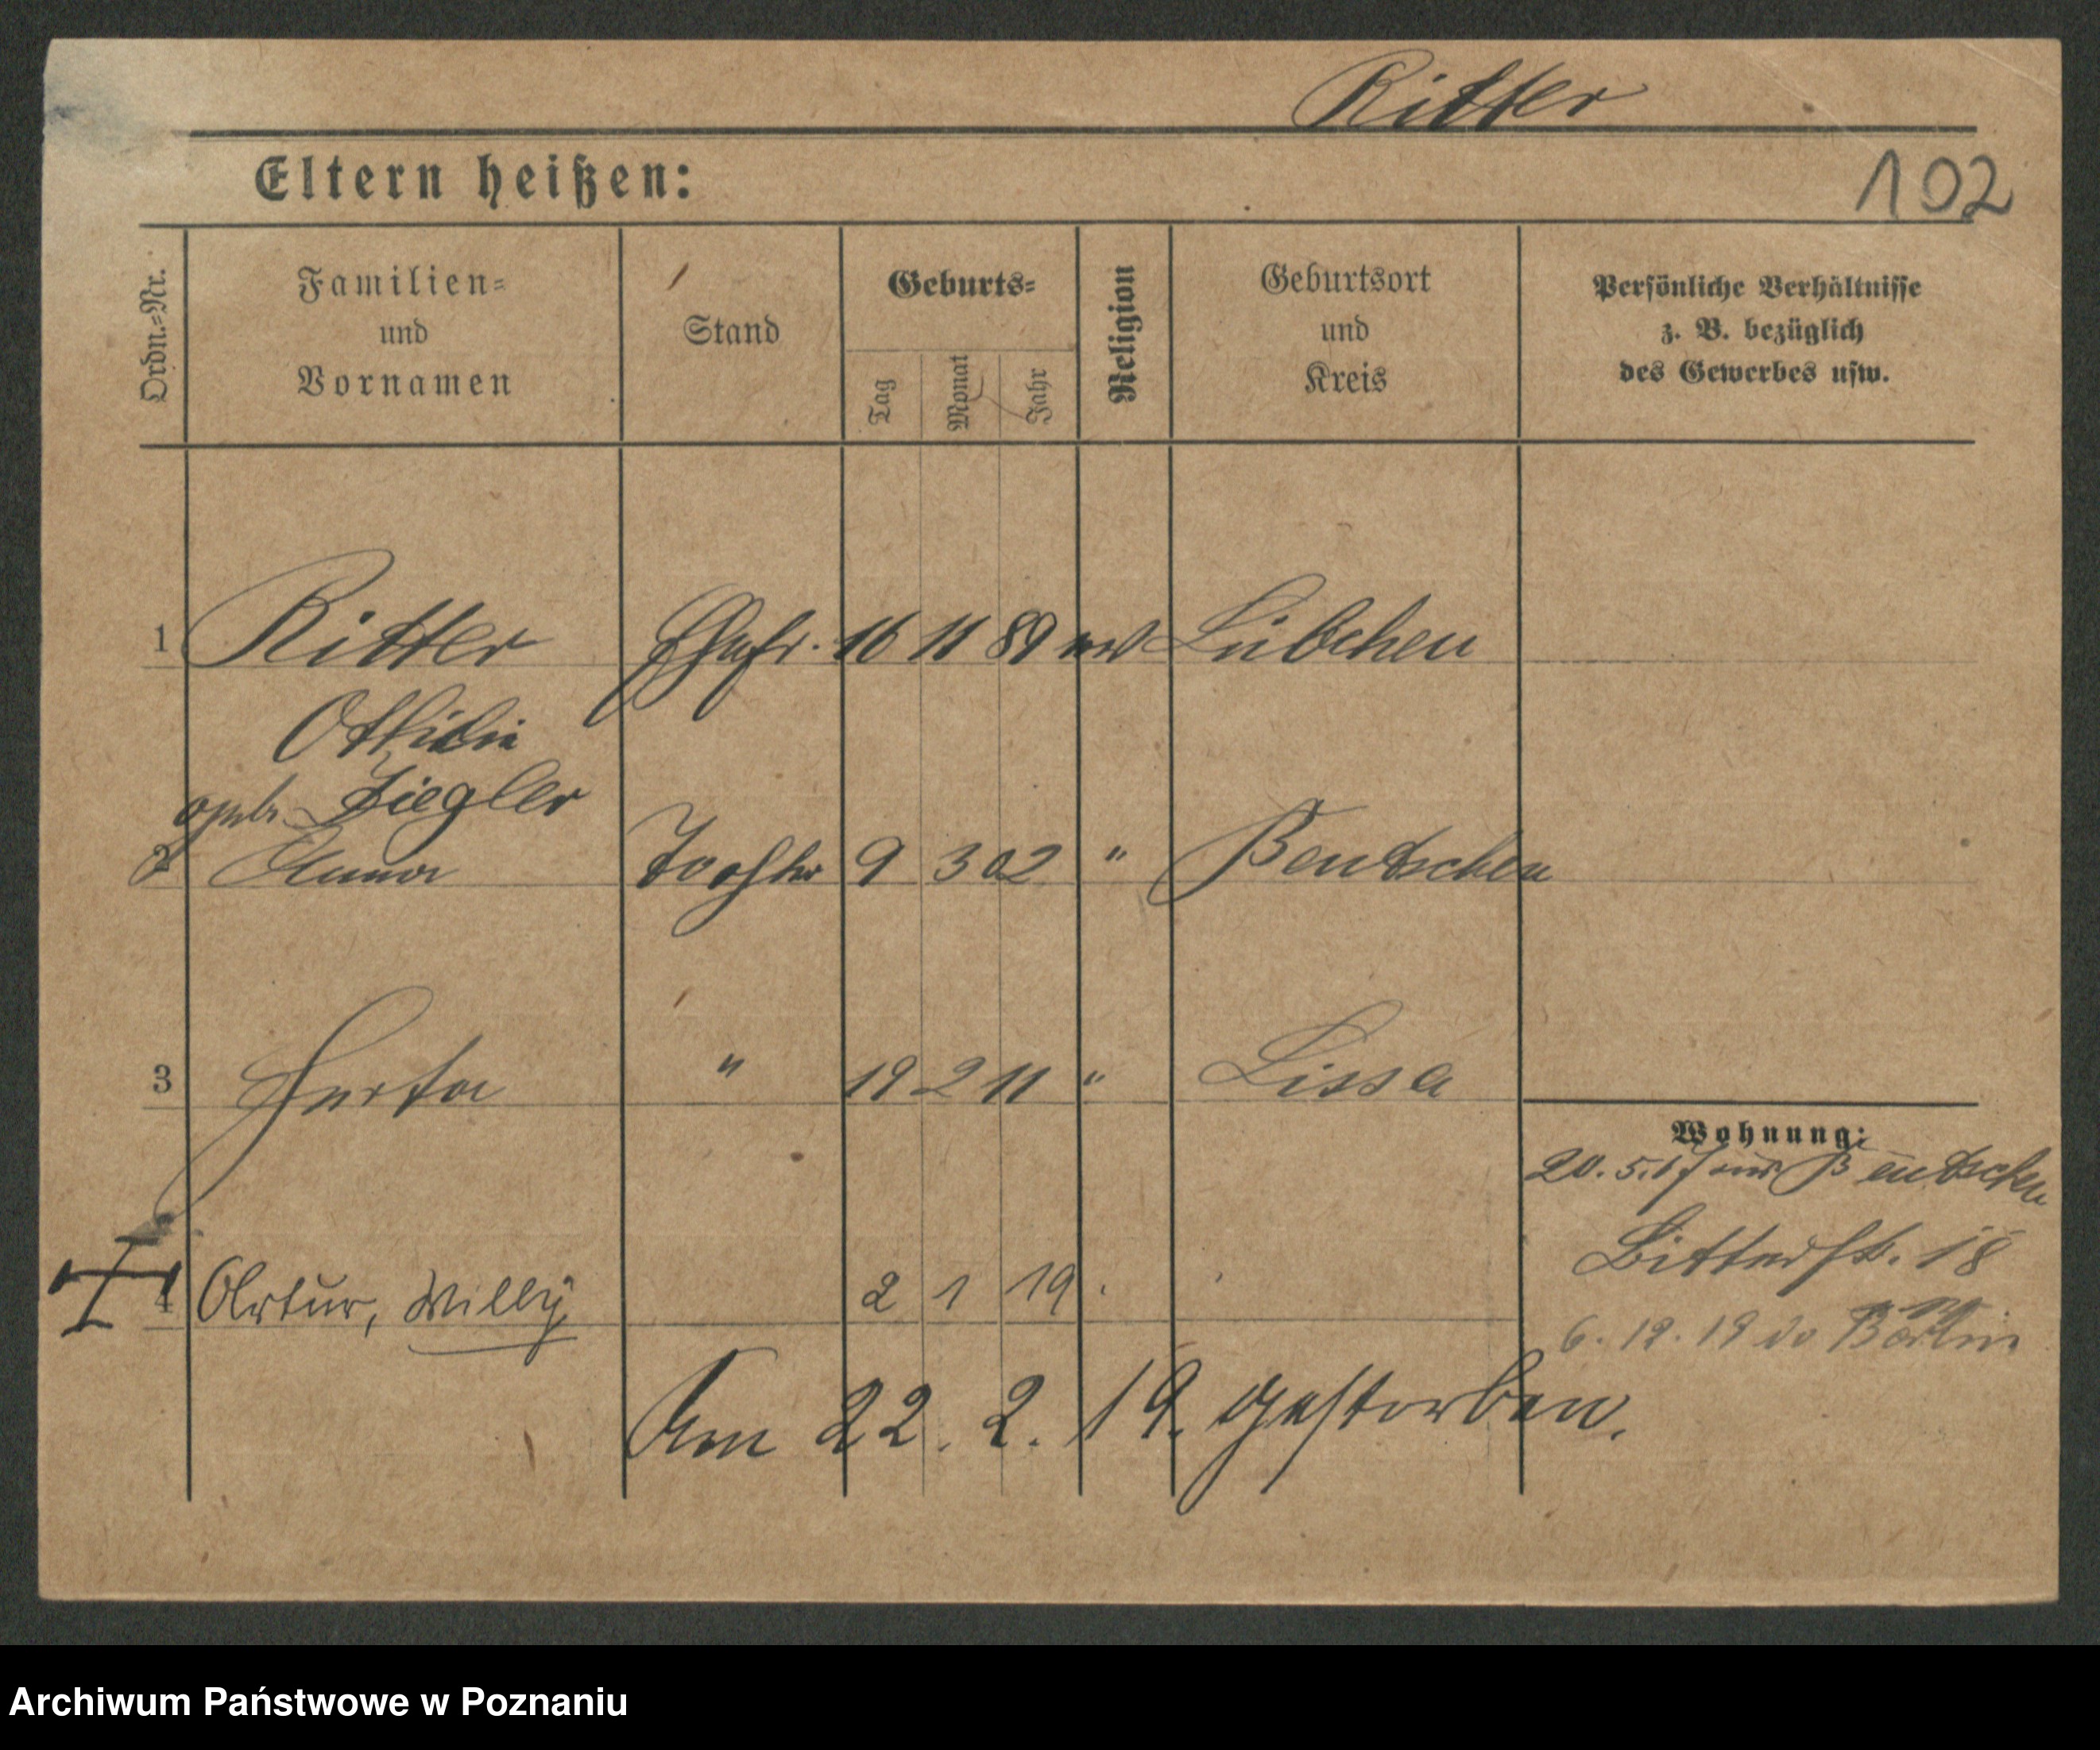 Ritter
Eltern heißen:
102
Ordn.=Nr.
Familien=
und
Vornamen
Stand
Geburts=
Tag
Monat
Jahr
Religion
Geburtsort
und
Kreis
Persönliche Verhältnisse
z. B. bezüglich
des Gewerbes usw.
1 Ritter Ehefr. 16 11 89 ev Lübchen
Ottilie
geb. Ziegler
2 Anna Tochter 9 3 02 " Bentschen
3 Herta " 19 2 11 " Lissa
Wohnung:
20. 5. 17 aus Bentschen
18
4 Artur, Willy 2 1 19.
6. 12. 19 Berlin
Am 22. 2. 19. gestorben.
Archiwum Państwowe w Poznaniu